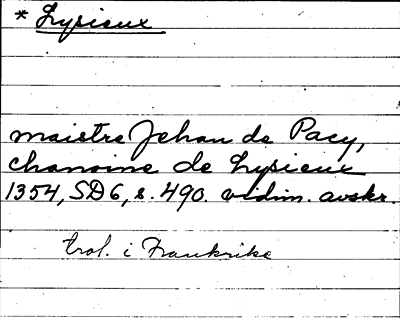 * Lysieux
maistre Jehan de Pacy,
chanoine de Lysieux
1354, SD6, s. 490. vidim. avskr.
trol. i Frankrike